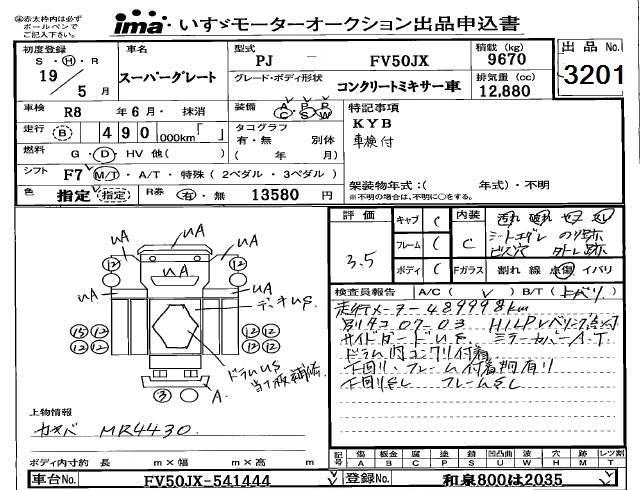 ④赤太枠内は必ず
ボールペンで
ご記入下さい。
ima いすゞモーターオークション出品申込書
初度登録 S・Ⓗ・R 19/5月
車名 スーパーグレート
型式 PJ － FV50JX
積載 (kg) 9670
出品 No. 3201
グレード・ボディ形状 コンクリートミキサー車
排気量 (cc) 12,880
車検 R8 年 6 月・ 抹消
装備 A P P C S W
特記事項
KYB
車検付
走行 (B) 490 000km「 」
タコグラフ
有・無 別体
( 年 月)
燃料 G・Ⓓ・HV 他( )
シフト F7 M/T・A/T・特殊 (2ペダル・3ペダル)
架装物年式:( 年式)・不明
※不明の場合は、不明に○をする。
色 指定 (指定) R券 有・無 13580 円
評価 3.5
キャブ C
フレーム C
ボディ C
内装 C
汚れ 破れ
シートエグレ のり跡
ビス穴
Fガラス 割れ 線 点傷 イバリ
検査員報告 A/C( ✓ ) B/T( )
走行メーター489998km
別タコ07-03 H/LPレベリング点灯
サイドガードU.E. ミラーカバーA.T
ドラム内コンクリ付着
下回り、フレーム付着物有り
下回りS フレームS
UA
UA
UA
UA
UA
UA
⑫ ⑫
デッキUS
⑮⑫ ⑫⑫
⑫⑫ ⑫⑫
ドラムUS
当て板補修
③ A
上物情報
カヤバ MR4430
ボディ内寸約 長 m×幅 m×高 m
記号 傷A 板金B 腐C 塗P 錆S 凹凸曲U 波W 穴H 跡M レツ割T
車台No. FV50JX-541444
登録No. 和泉800は2035